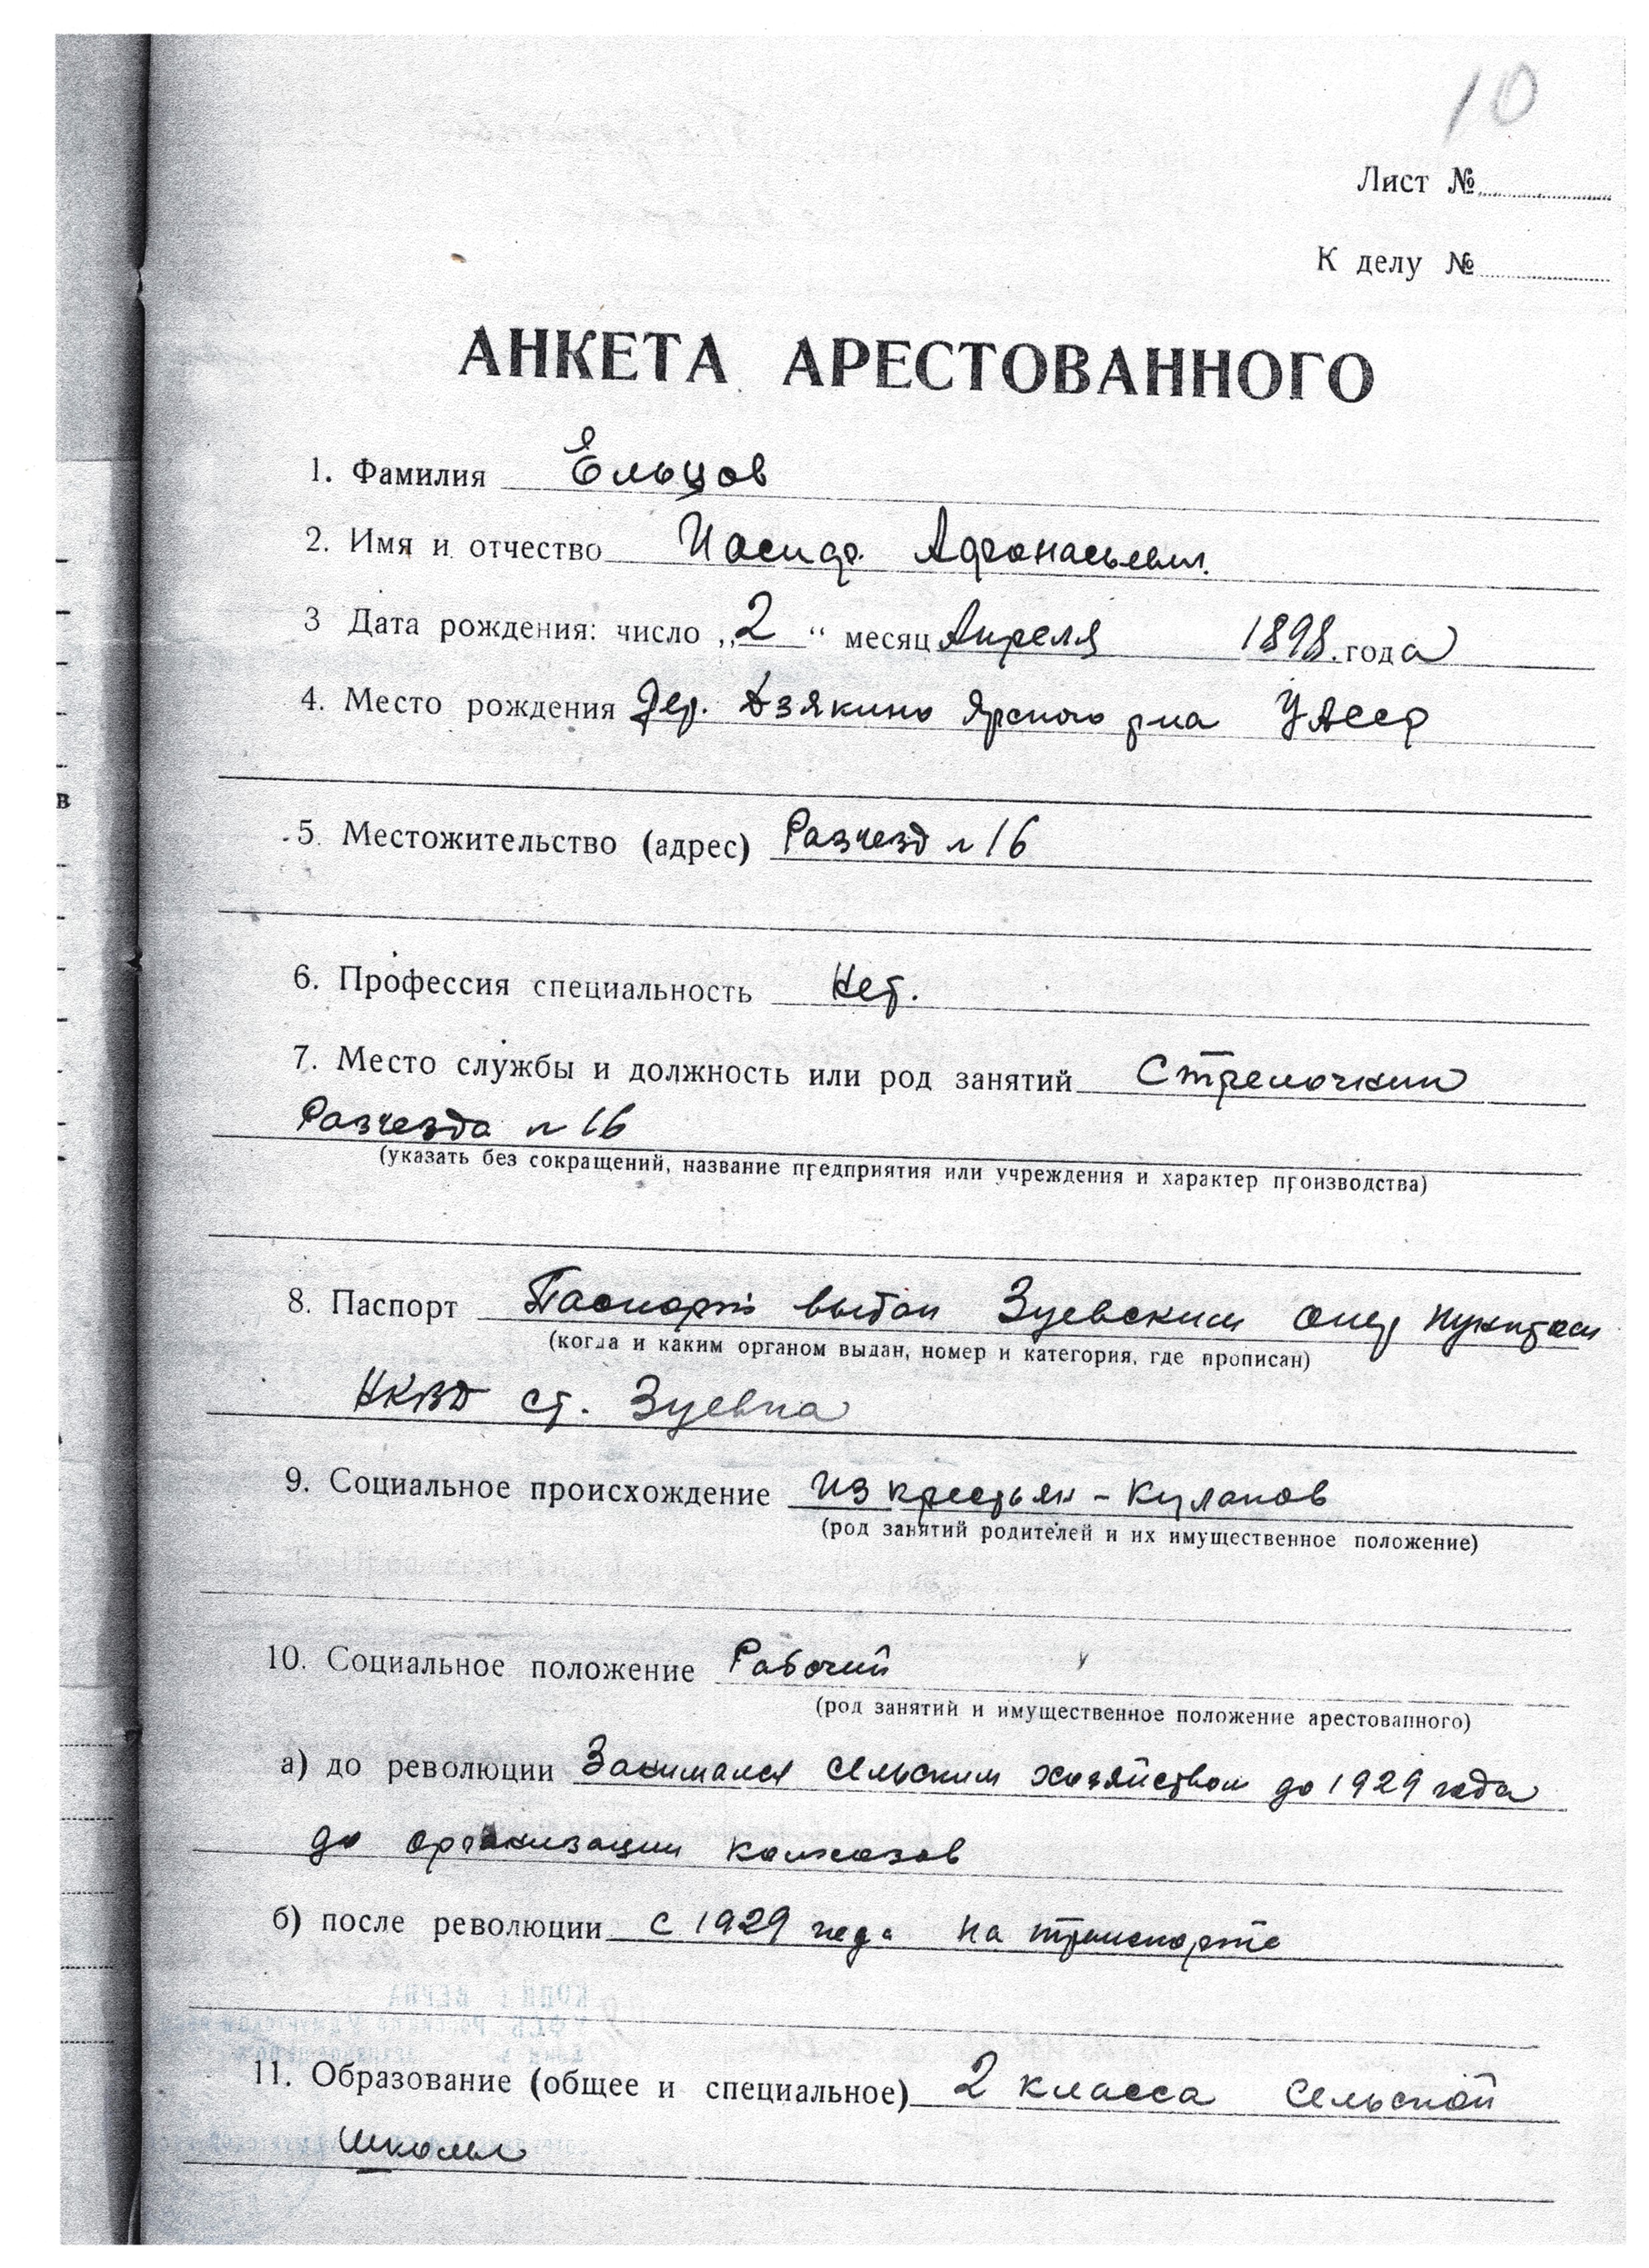 10
Лист №
К делу №
АНКЕТА АРЕСТОВАННОГО
1. Фамилия Ельцов
2. Имя и отчество Иосиф Афонасьевич
3 Дата рождения: число „2“ месяц Апреля 1898. года
4. Место рождения Дер. Дзякино Ярского р-на УАССР
в
5. Местожительство (адрес) Разъезд №16
6. Профессия специальность Нет.
7. Место службы и должность или род занятий Стрелочник
Разъезда №16
(указать без сокращений, название предприятия или учреждения и характер производства)
8. Паспорт Паспорт выдан Зуевским опер пунктом
(когда и каким органом выдан, номер и категория, где прописан)
НКВД ст. Зуевка
9. Социальное происхождение Из крестьян - кулаков
(род занятий родителей и их имущественное положение)
10. Социальное положение Рабочий
(род занятий и имущественное положение арестованного)
а) до революции Занимался сельским хозяйством до 1929 года
до организации колхозов
б) после революции с 1929 года на транспорте
11. Образование (общее и специальное) 2 класса сельской
школы